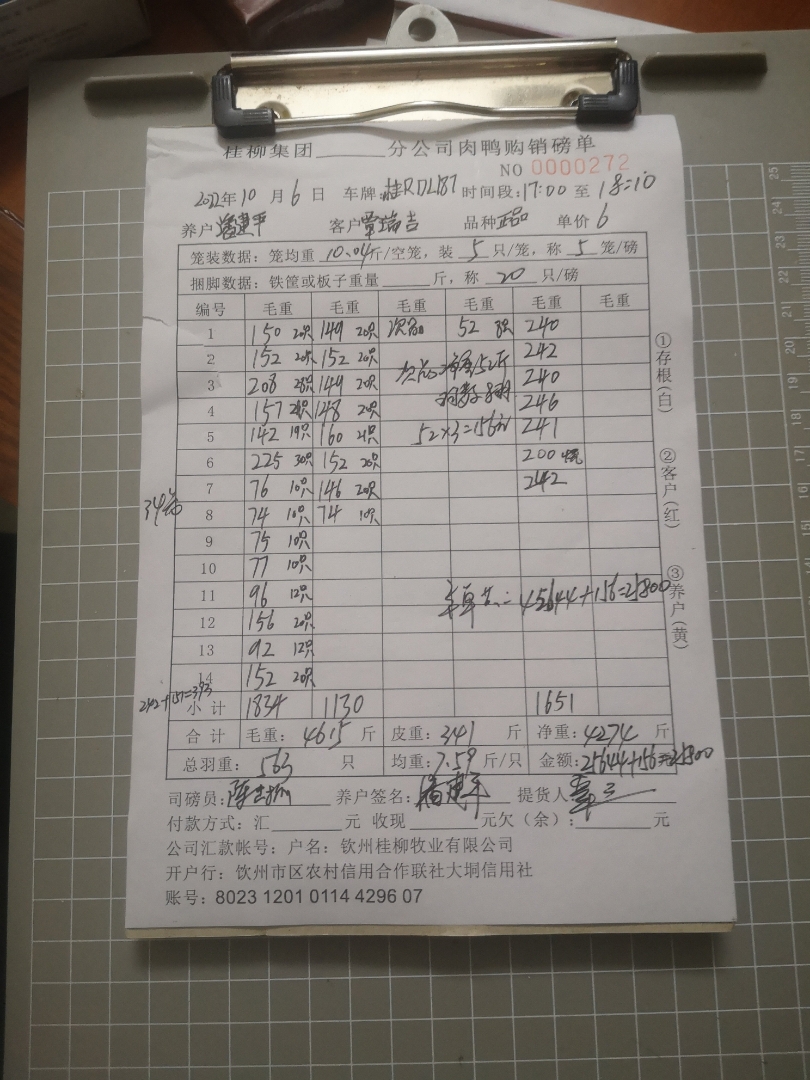 桂柳集团______分公司肉鸭购销磅单
NO 0000272
2022年10月6日 车牌:桂RDL187 时间段:17:00至18:10
养户 客户覃瑞吉 品种正品 单价6
笼装数据:笼均重10.04斤/空笼,装5只/笼,称5笼/磅
捆脚数据:铁筐或板子重量______斤,称20只/磅
编号 毛重 毛重 毛重 毛重 毛重 毛重
1 150 20只 149 20只 次品 52 8只 240
2 152 20只 152 20只 242
次品:净重152斤
3 208 28只 149 20只 240
4 157 148 20只 246
5 142 19只 160 21只 52×3=156 241
6 225 30只 152 20只 200
7 76 10只 146 20只 242
8 74 10只 74 10只
9 75 10只
10 77 10只
11 96 12只
45644+156=25800
12 156 20只
13 92 12只
14 152 20只
242+151=393
小计 1834 1130 1651
合计 毛重:4615斤 皮重:341斤 净重:4274斤
总羽重:563只 均重:7.59斤/只 金额:25644+156=25800
司磅员: 养户签名: 提货人
付款方式:汇______元 收现______元欠(余):______元
公司汇款帐号:户名:钦州桂柳牧业有限公司
开户行:钦州市区农村信用合作联社大垌信用社
账号:8023 1201 0114 4296 07
①存根(白)
②客户(红)
③养户(黄)